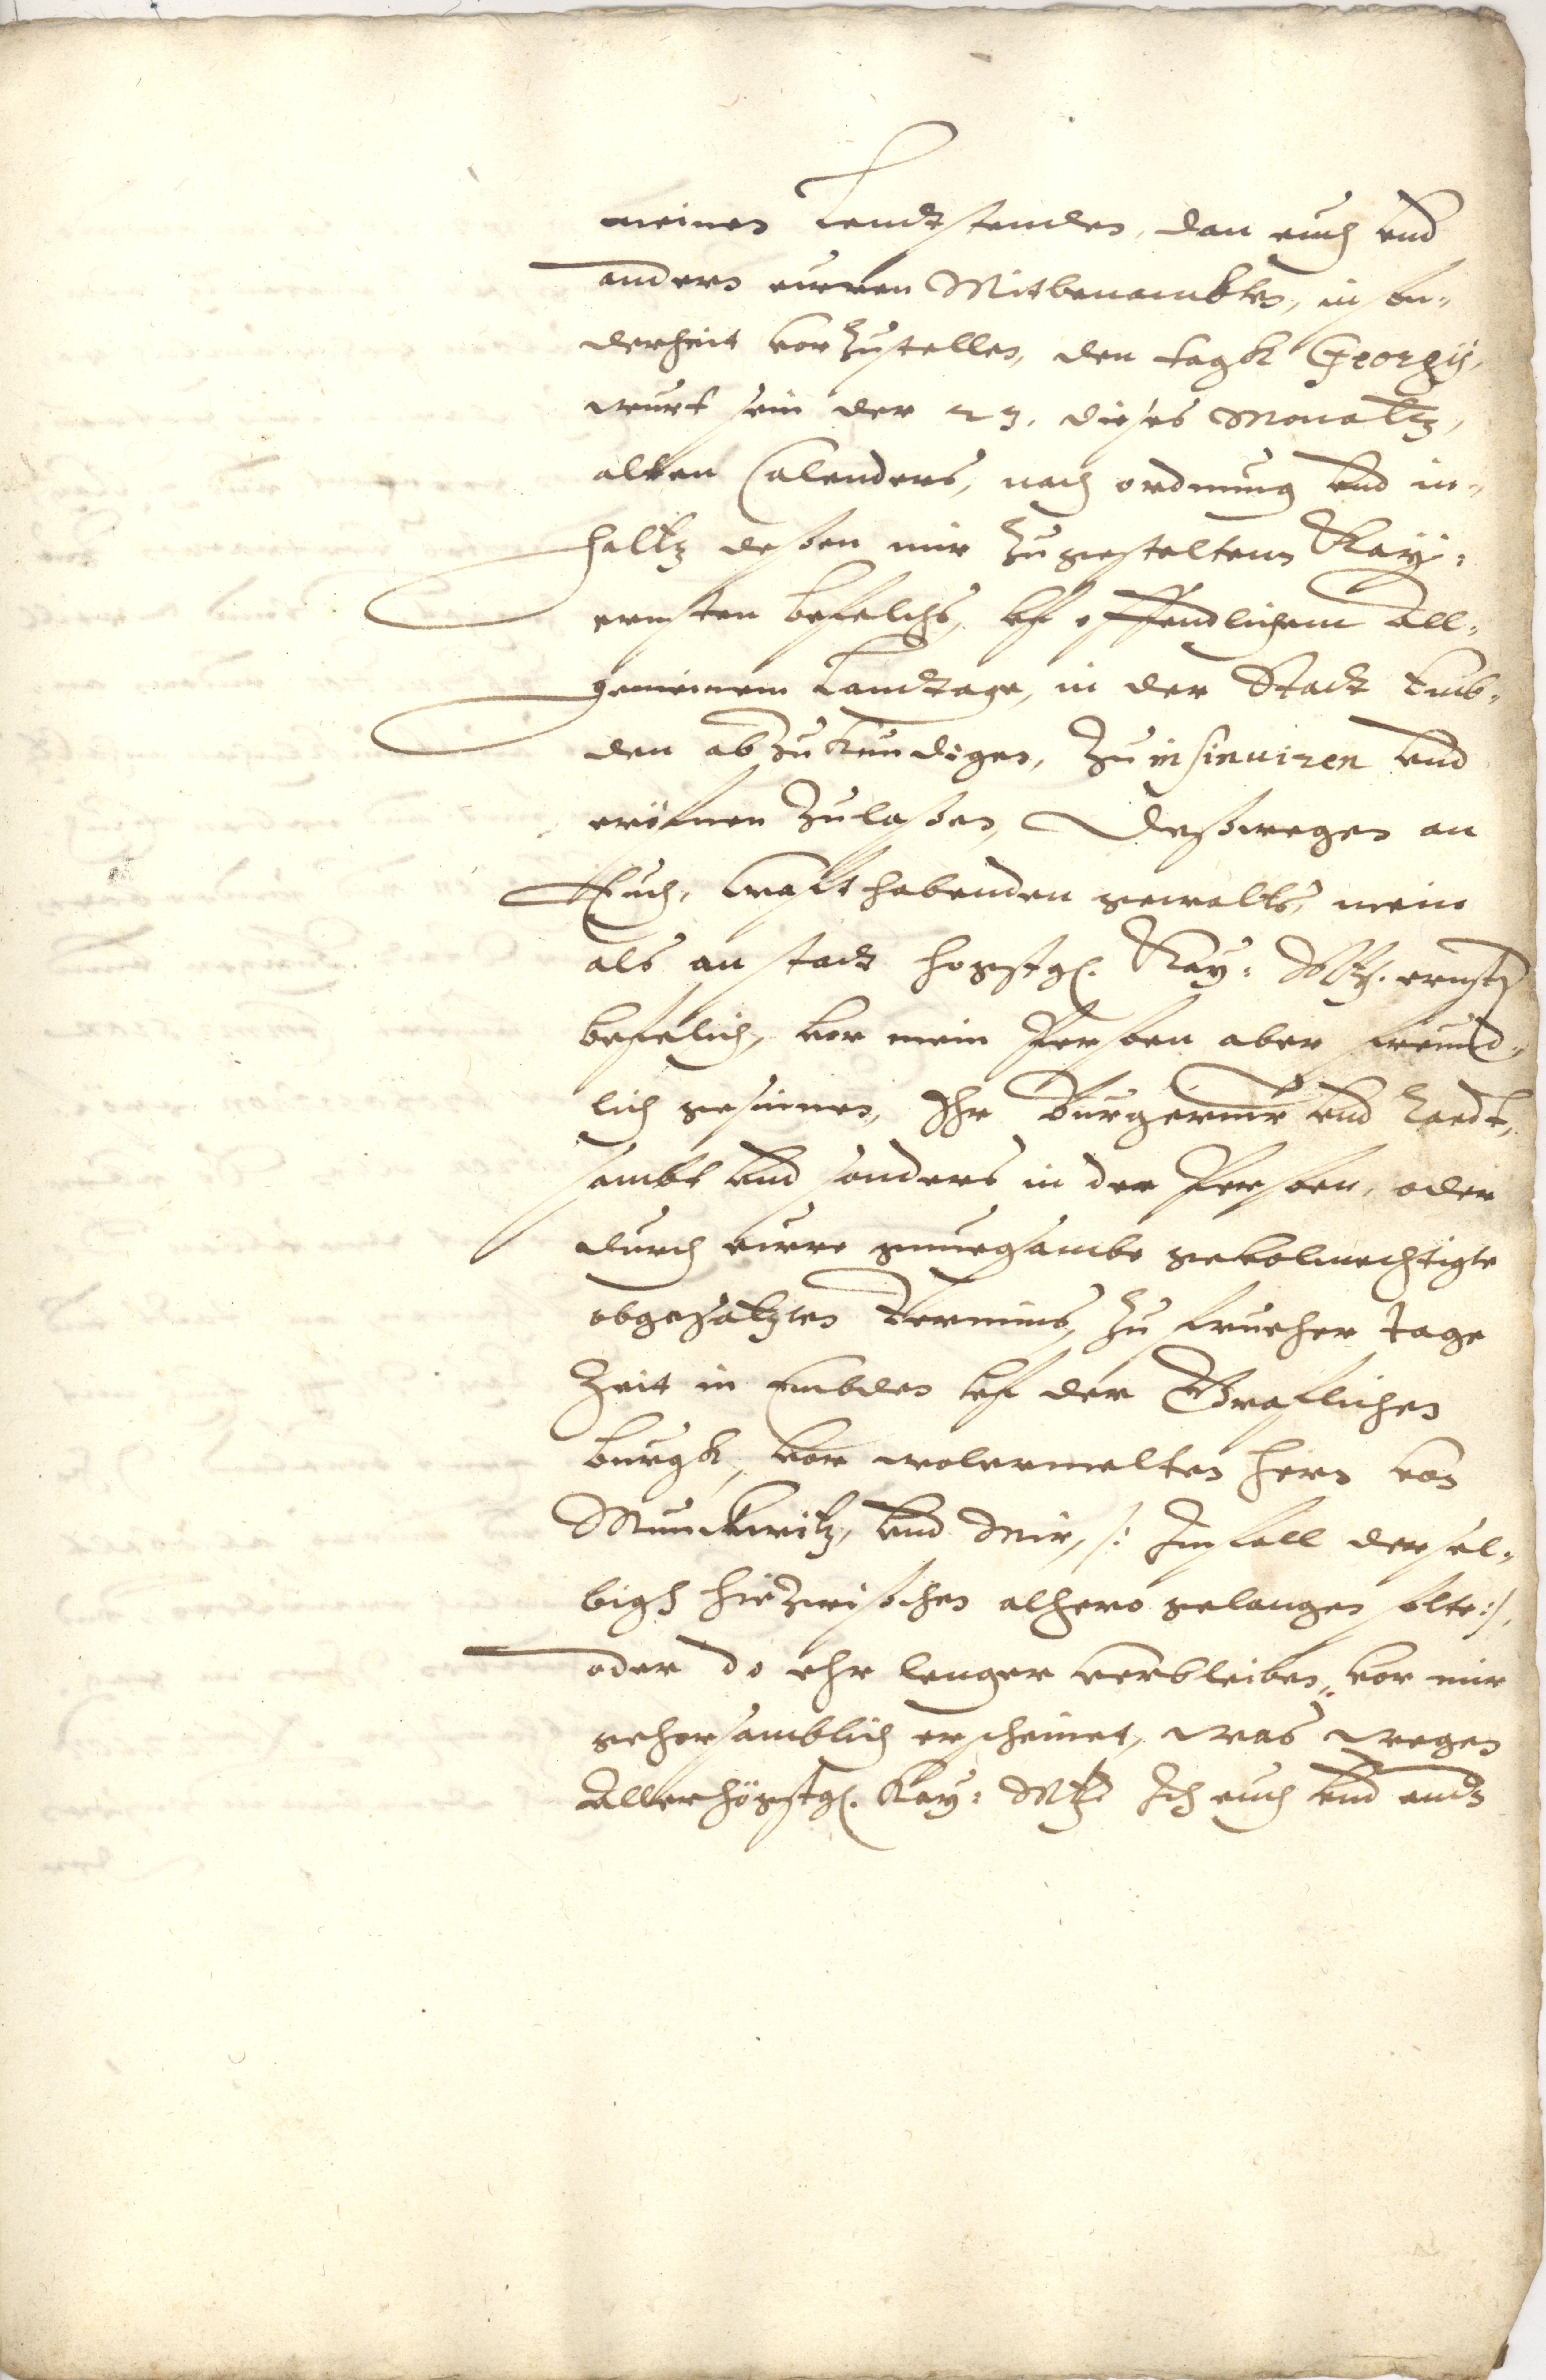 meinen Landtstenden, dan euch vnd
andern ewren Mitbenambten, in son-
derheit vorzustellen, den tagk Georgij,
wurt sein der 23. dieses Monaltz,
alten Calenders, nach ordnung vnd in-
haltz deßen mir zugestelten Kay:
ernsten befelchs, vf offendlichem all-
gemeinem Landtage, in der Stadt Emb-
den abzukundigen, zu insinuiren vnd
eröfnen zulaßen, Deßwegen an
Euch, kraft habenden gewalts, mein
als an stadt hogstg. Kay: Mtz. ernster
befelich, vor mein Persoen aber freund-
lich gesinnen, Ihr Burgermr vnd Raedt,
sambt vnd sonders in der Persoen, oder
durch ewre gnuegsambe gevolmechtigte
obgesatztes Termins, zu frueher tage
Zeit in Embden vf der Graflichen
burgk, vor wolermelten hern von
Munckwitz, vnd Mir, /: Im fall dersel-
bigh hiezwischen alhero gelangen solte:/,
oder do ehr lenger verbleiben, vor mir
gehorsamblich erscheinet, was wegen
Allerhögstg. Kay: Mtz. Ich euch vnd andr